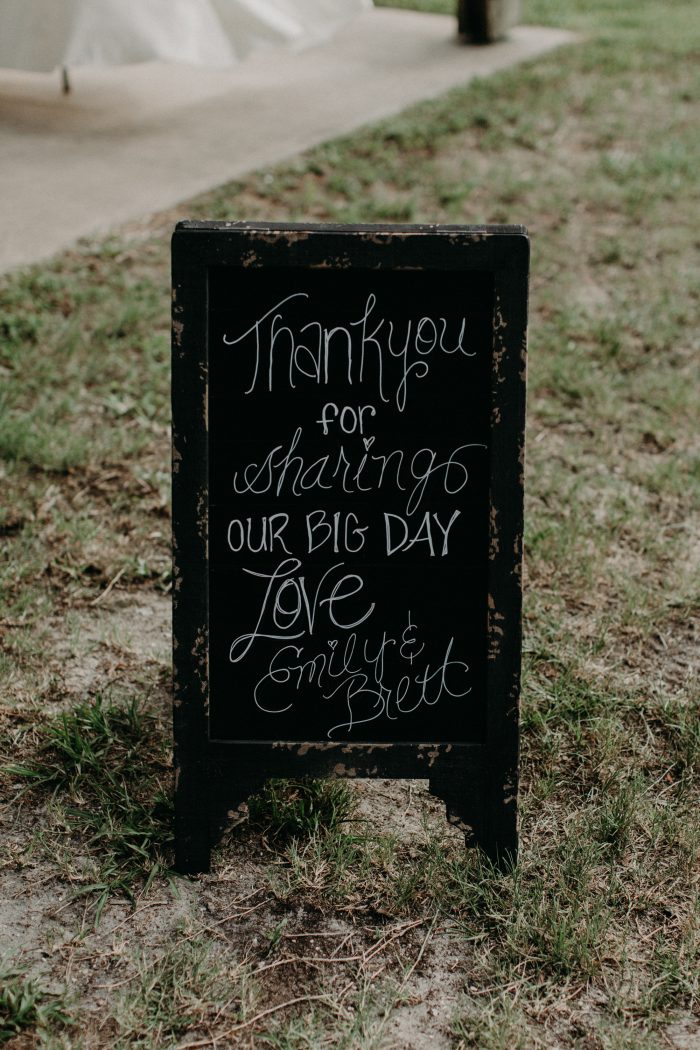 Thankyou
for
sharing
OUR BIG DAY
Love
Emily &
Brett